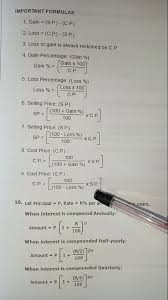 IMPORTANT FORMULAE
1. Gain = (S.P.) - (C.P.)
2. Loss = (C.P.) - (S.P.)
3. Loss or gain is always reckoned on C.P.
4. Gain Percentage: (Gain %)
Gain % = ( Gain x 100 / C.P. )
5. Loss Percentage: (Loss %)
Loss % = ( Loss x 100 / C.P. )
6. Selling Price: (S.P.)
SP = [ (100 + Gain %) / 100 x C.P ]
7. Selling Price: (S.P.)
SP = [ (100 - Loss %) / 100 x C.P. ]
8. Cost Price: (C.P.)
C.P. = [ 100 / (100 + Gain %) x S.P. ]
9. Cost Price: (C.P.)
C.P. = [ 100 / (100 - Loss %) x S.P. ]
10. Let Principal = P, Rate = R% per
When interest is compound Annually:
Amount = P [ 1 + R / 100 ] n
When interest is compounded Half-yearly:
Amount = P [ 1 + (R/2) / 100 ] 2n
When interest is compounded Quarterly:
Amount = P [ 1 +